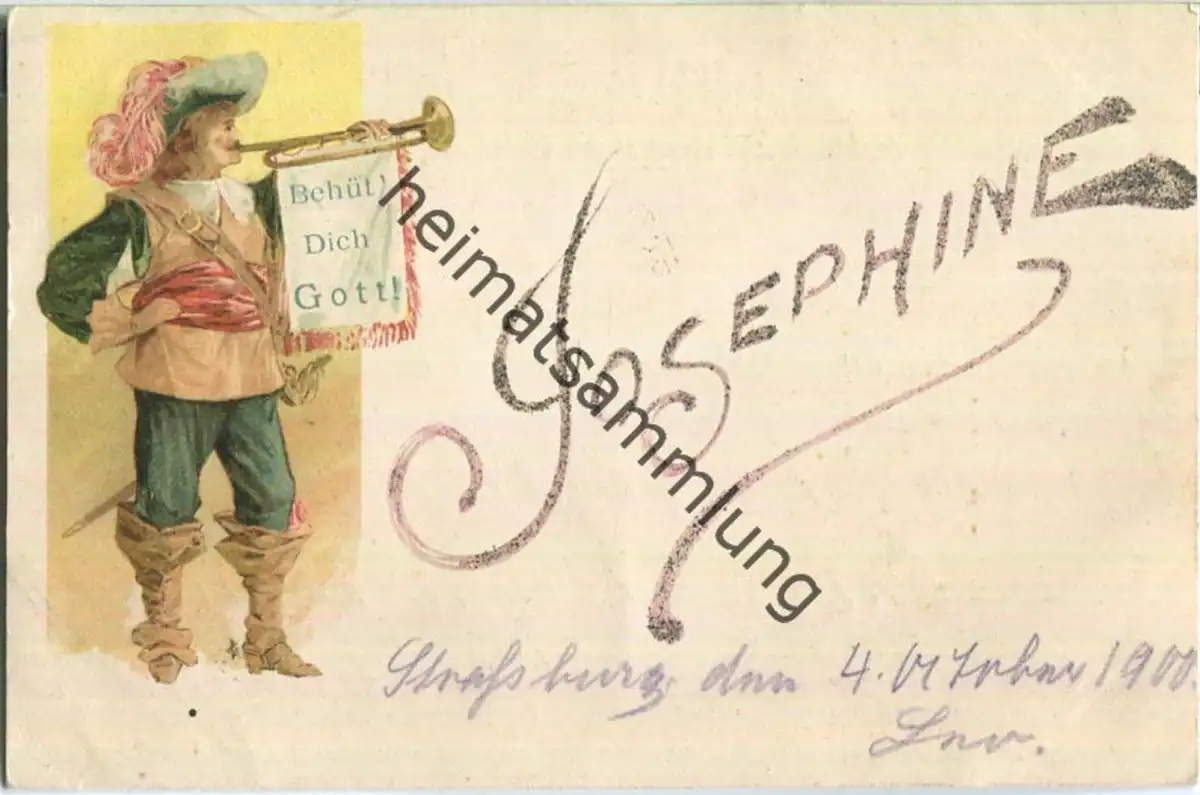 Behüt'
Dich
Gott!
JOSEPHINE
heimatsammlung
Straßburg den 4. Oktober 1900.
Leo.